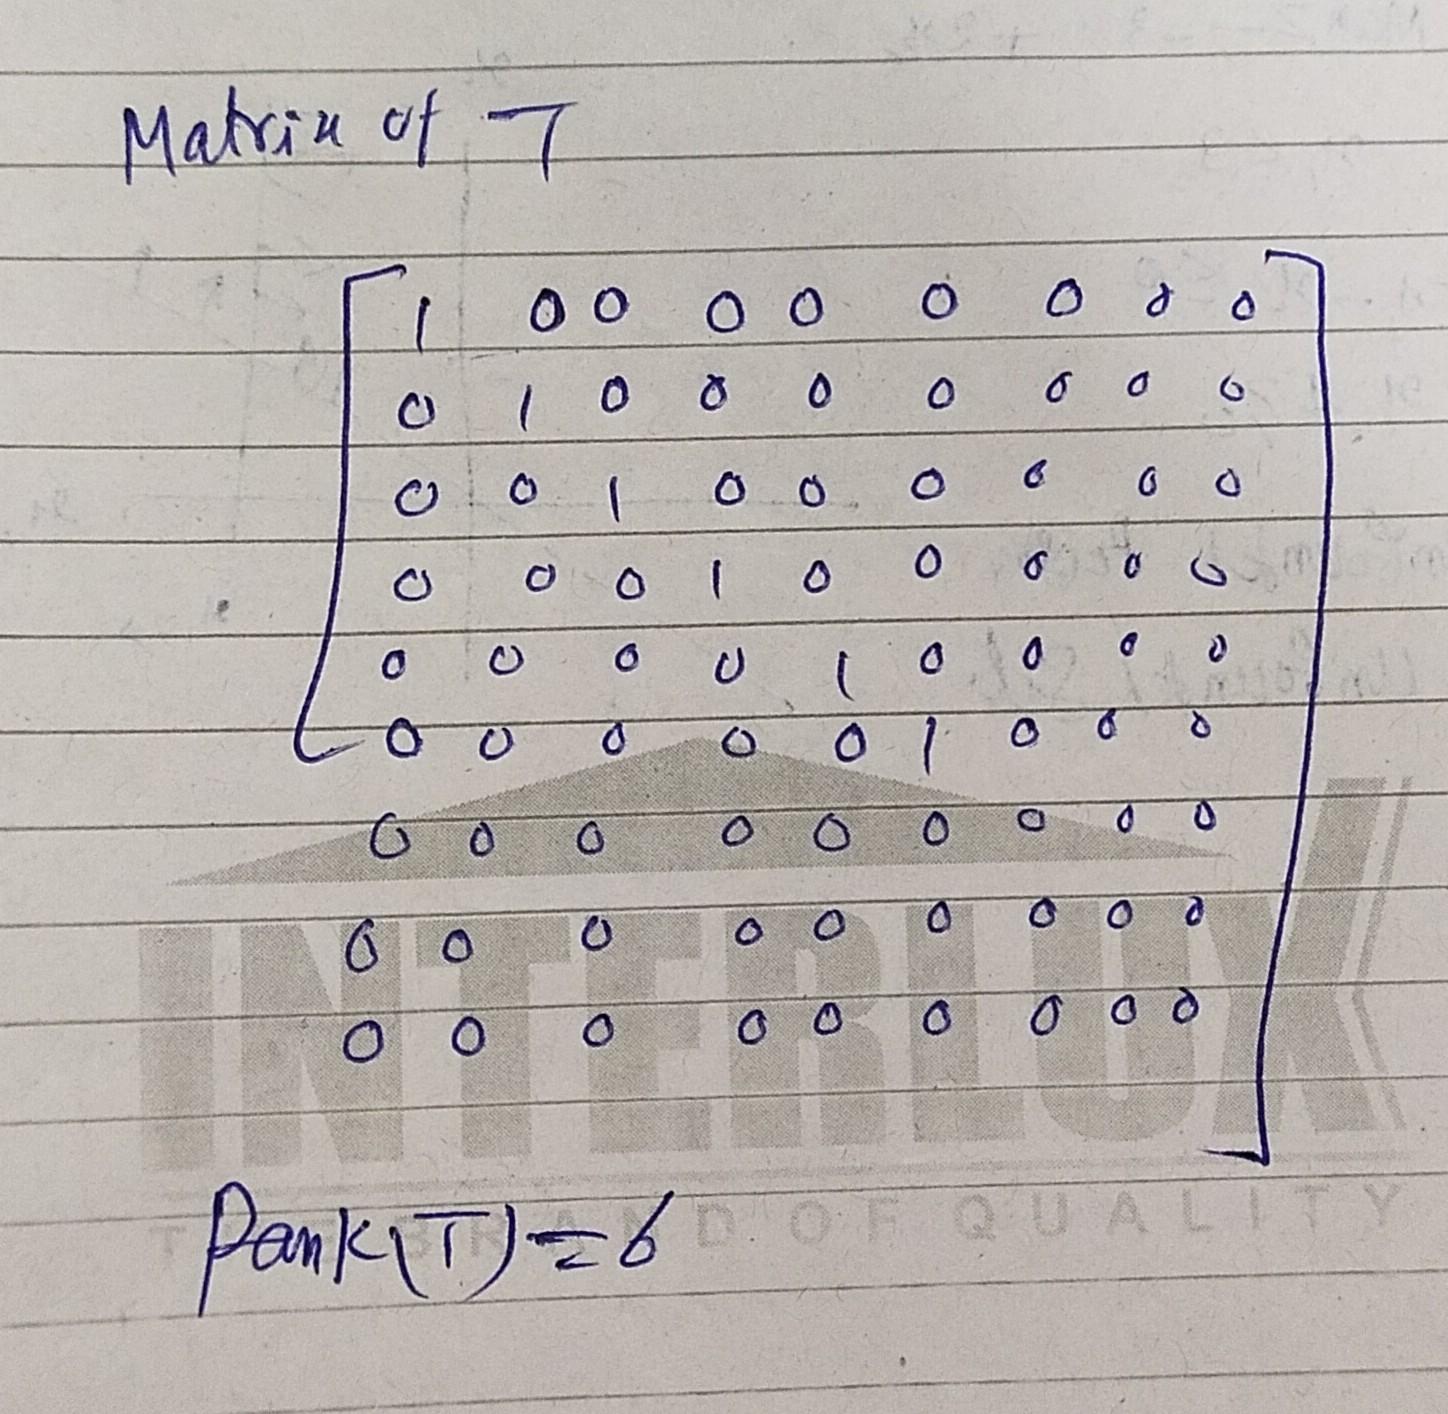 Matrix of T
1 0 0 0 0 0 0 0 0
0 1 0 0 0 0 0 0 0
0 0 1 0 0 0 0 0 0
0 0 0 1 0 0 0 0 0
0 0 0 0 1 0 0 0 0
0 0 0 0 0 1 0 0 0
0 0 0 0 0 0 0 0 0
0 0 0 0 0 0 0 0 0
0 0 0 0 0 0 0 0 0
INTERLUX
THE BRAND OF QUALITY
Rank(T) = 6